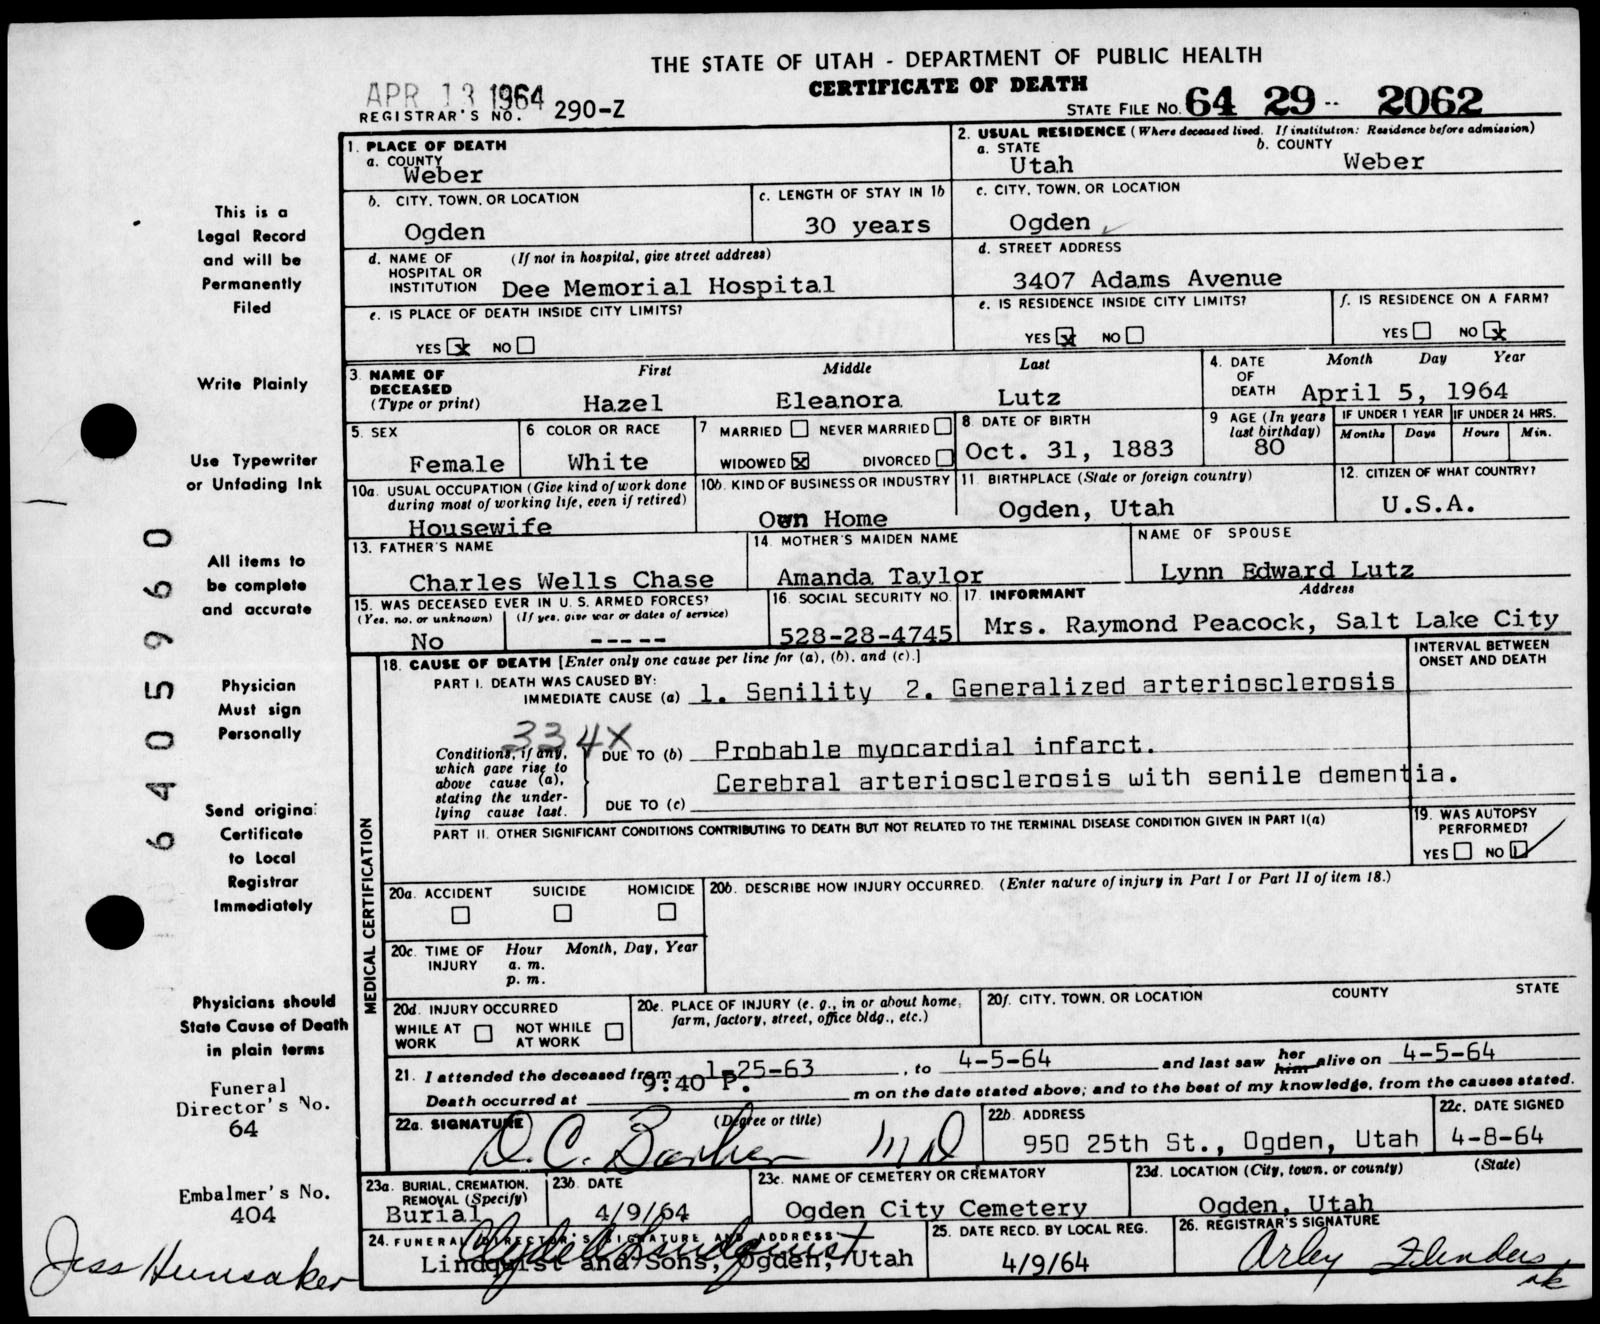 THE STATE OF UTAH - DEPARTMENT OF PUBLIC HEALTH
CERTIFICATE OF DEATH
APR 13 1964
REGISTRAR'S NO. 290-Z
STATE FILE NO. 64 29 -- 2062
1. PLACE OF DEATH
a. COUNTY
Weber
2. USUAL RESIDENCE (Where deceased lived. If institution: Residence before admission)
a. STATE
Utah
b. COUNTY
Weber
b. CITY, TOWN, OR LOCATION
Ogden
c. LENGTH OF STAY IN 1b
30 years
c. CITY, TOWN, OR LOCATION
Ogden
d. NAME OF HOSPITAL OR INSTITUTION (If not in hospital, give street address)
Dee Memorial Hospital
d. STREET ADDRESS
3407 Adams Avenue
e. IS PLACE OF DEATH INSIDE CITY LIMITS?
YES X NO
e. IS RESIDENCE INSIDE CITY LIMITS?
YES X NO
f. IS RESIDENCE ON A FARM?
YES NO X
3. NAME OF DECEASED (Type or print)
First Middle Last
Hazel Eleanora Lutz
4. DATE OF DEATH Month Day Year
April 5, 1964
5. SEX
Female
6 COLOR OR RACE
White
7 MARRIED NEVER MARRIED
WIDOWED X DIVORCED
8 DATE OF BIRTH
Oct. 31, 1883
9 AGE (In years last birthday)
80
IF UNDER 1 YEAR IF UNDER 24 HRS.
Months Days Hours Min.
10a. USUAL OCCUPATION (Give kind of work done during most of working life, even if retired)
Housewife
10b. KIND OF BUSINESS OR INDUSTRY
Own Home
11 BIRTHPLACE (State or foreign country)
Ogden, Utah
12. CITIZEN OF WHAT COUNTRY?
U.S.A.
13. FATHER'S NAME
Charles Wells Chase
14. MOTHER'S MAIDEN NAME
Amanda Taylor
NAME OF SPOUSE
Lynn Edward Lutz
15. WAS DECEASED EVER IN U.S. ARMED FORCES?
(Yes, no, or unknown) (If yes, give war or dates of service)
No -----
16. SOCIAL SECURITY NO.
528-28-4745
17 INFORMANT Address
Mrs. Raymond Peacock, Salt Lake City
MEDICAL CERTIFICATION
18. CAUSE OF DEATH [Enter only one cause per line for (a), (b), and (c).]
INTERVAL BETWEEN ONSET AND DEATH
PART I. DEATH WAS CAUSED BY:
IMMEDIATE CAUSE (a) 1. Senility 2. Generalized arteriosclerosis
334X
Conditions, if any, which gave rise to above cause (a), stating the underlying cause last.
DUE TO (b) Probable myocardial infarct.
Cerebral arteriosclerosis with senile dementia.
DUE TO (c)
PART II. OTHER SIGNIFICANT CONDITIONS CONTRIBUTING TO DEATH BUT NOT RELATED TO THE TERMINAL DISEASE CONDITION GIVEN IN PART I(a)
19. WAS AUTOPSY PERFORMED?
YES NO
20a. ACCIDENT SUICIDE HOMICIDE
20b. DESCRIBE HOW INJURY OCCURRED. (Enter nature of injury in Part I or Part II of item 18.)
20c. TIME OF INJURY Hour Month, Day, Year
a. m.
p. m.
20d. INJURY OCCURRED
WHILE AT WORK NOT WHILE AT WORK
20e. PLACE OF INJURY (e. g., in or about home, farm, factory, street, office bldg., etc.)
20f. CITY, TOWN, OR LOCATION COUNTY STATE
21. I attended the deceased from 1-25-63, to 4-5-64 and last saw her him alive on 4-5-64
Death occurred at 9:40 P. m on the date stated above; and to the best of my knowledge, from the causes stated.
22a. SIGNATURE (Degree or title)
D. C. Barker MD
22b. ADDRESS
950 25th St., Ogden, Utah
22c. DATE SIGNED
4-8-64
23a. BURIAL, CREMATION, REMOVAL (Specify)
Burial
23b DATE
4/9/64
23c. NAME OF CEMETERY OR CREMATORY
Ogden City Cemetery
23d. LOCATION (City, town, or county) (State)
Ogden, Utah
24. FUNERAL DIRECTOR'S SIGNATURE AND ADDRESS
Lindquist and Sons, Ogden, Utah
25. DATE RECD. BY LOCAL REG.
4/9/64
26. REGISTRAR'S SIGNATURE
Arley Flinders
nk
This is a
Legal Record
and will be
Permanently
Filed
Write Plainly
Use Typewriter
or Unfading Ink
All items to
be complete
and accurate
Physician
Must sign
Personally
Send original
Certificate
to Local
Registrar
Immediately
Physicians should
State Cause of Death
in plain terms
Funeral
Director's No.
64
Embalmer's No.
404
Jess Hunsaker
6405960